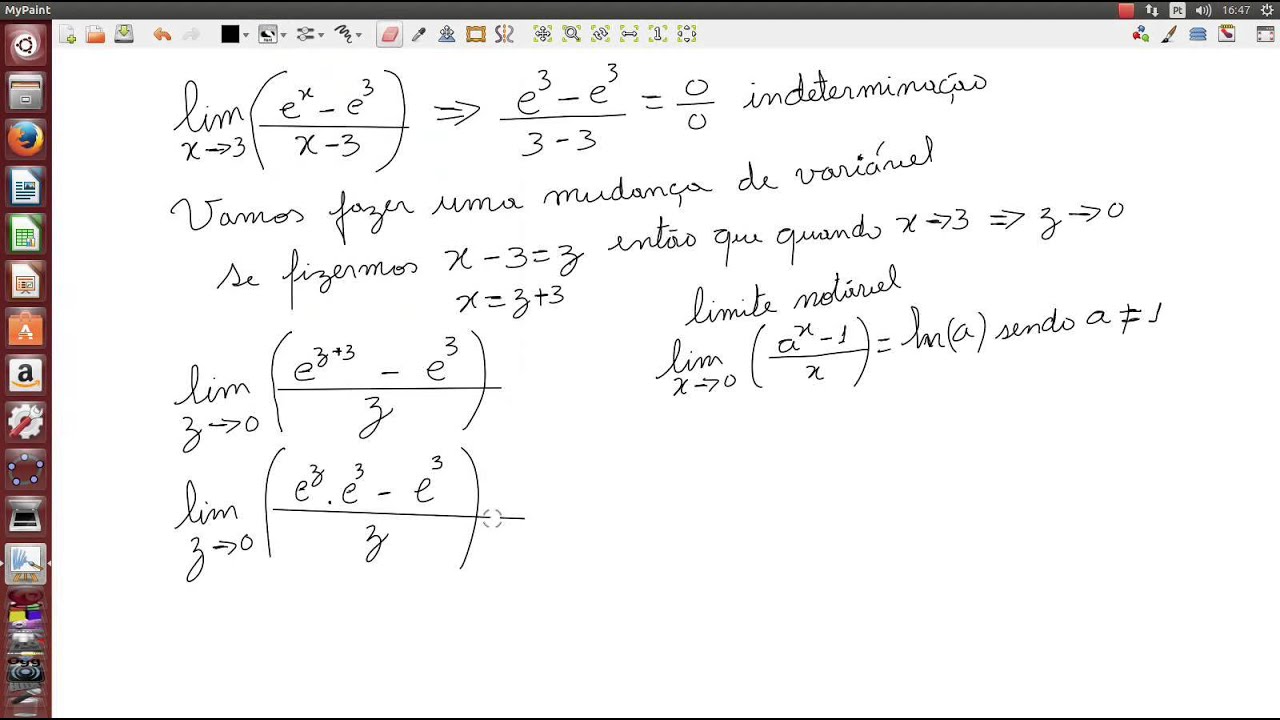 MyPaint
Pt
16:47
lim x→3 (e^x - e^3 / x - 3) ⇒ e^3 - e^3 / 3 - 3 = 0/0 indeterminação
Vamos fazer uma mudança de variável
se fizermos x - 3 = z então que quando x→3 ⇒ z→0
x = z+3
limite notável
lim x→0 (a^x - 1 / x) = ln(a) sendo a ≠ 1
lim z→0 (e^(z+3) - e^3 / z)
lim z→0 (e^z . e^3 - e^3 / z)